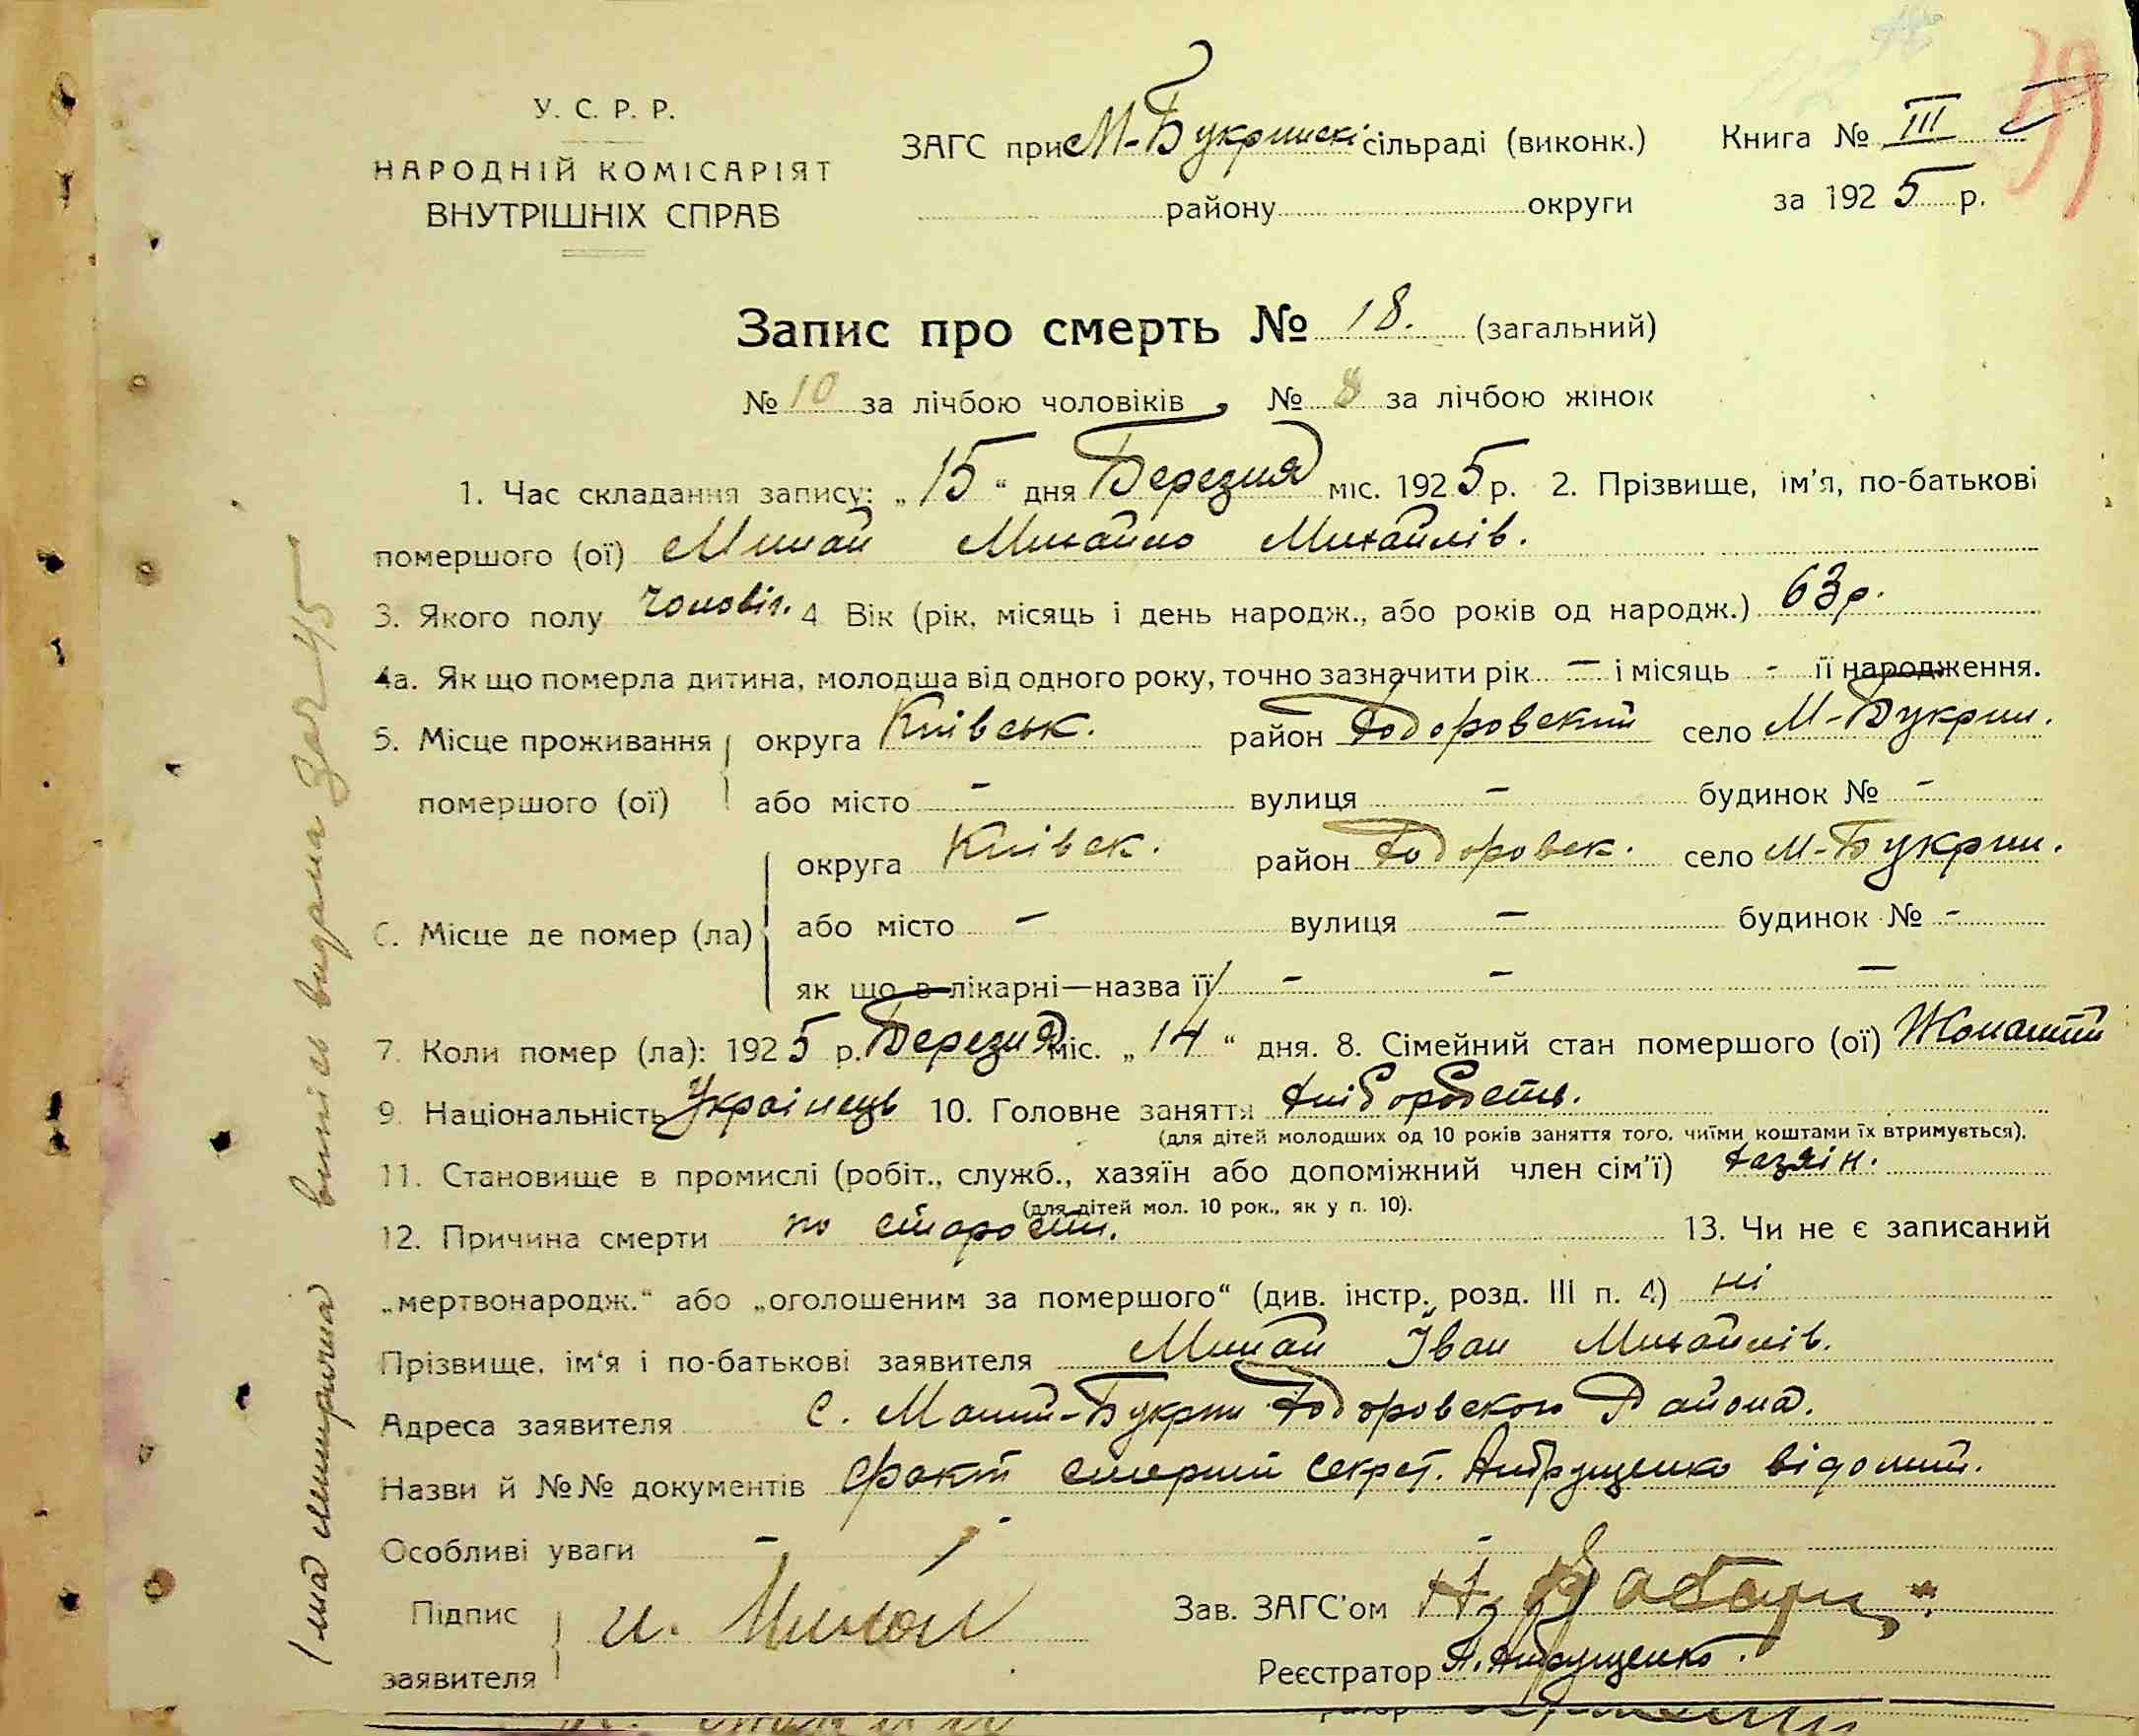 У. С. Р. Р.
НАРОДНІЙ КОМІСАРІЯТ
ВНУТРІШНІХ СПРАВ
ЗАГС при М-Букринскі сільраді (виконк.)
району округи
Книга № III
за 1925 р.
39
Запис про смерть № 18. (загальний)
№ 10 за лічбою чоловіків, № 8 за лічбою жінок
1. Час складання запису: „15“ дня Березня міс. 1925 р. 2. Прізвище, ім'я, по-батькові
помершого (ої) Михайло Михайлів.
3. Якого полу чоловіч. 4 Вік (рік, місяць і день народж., або років од народж.) 63 р.
4а. Як що померла дитина, молодша від одного року, точно зазначити рік – і місяць - її народження.
5. Місце проживання помершого (ої) округа Київськ. район Ходоровский село М-Букрин.
або місто – вулиця – будинок № –
6. Місце де помер (ла) округа Київск. район Ходоровск. село М-Букрин.
або місто – вулиця – будинок № -
як що в лікарні—назва її – – –
7. Коли помер (ла): 1925 р. Березня міс. „14“ дня. 8. Сімейний стан помершого (ої) Жонатий
9. Національність Українець 10. Головне заняття хліборобств.
(для дітей молодших од 10 років заняття того, чиїми коштами їх втримується).
11. Становище в промислі (робіт., служб., хазяїн або допоміжний член сім'ї) хазяїн.
(для дітей мол. 10 рок., як у п. 10).
12. Причина смерти по старости. 13. Чи не є записаний
„мертвонародж.“ або „оголошеним за помершого“ (див. інстр., розд. III п. 4) ні
Прізвище, ім'я і по-батькові заявителя Іван Михайлів.
Адреса заявителя с. Малий-Букрин Ходоровского Района.
Назви й №№ документів Факт смерти секрет. Андрущенко відомий.
Особливі уваги – -
Підпис заявителя И.
Зав. ЗАГС'ом
Реєстратор А. Андрущенко.
випісь видана 45